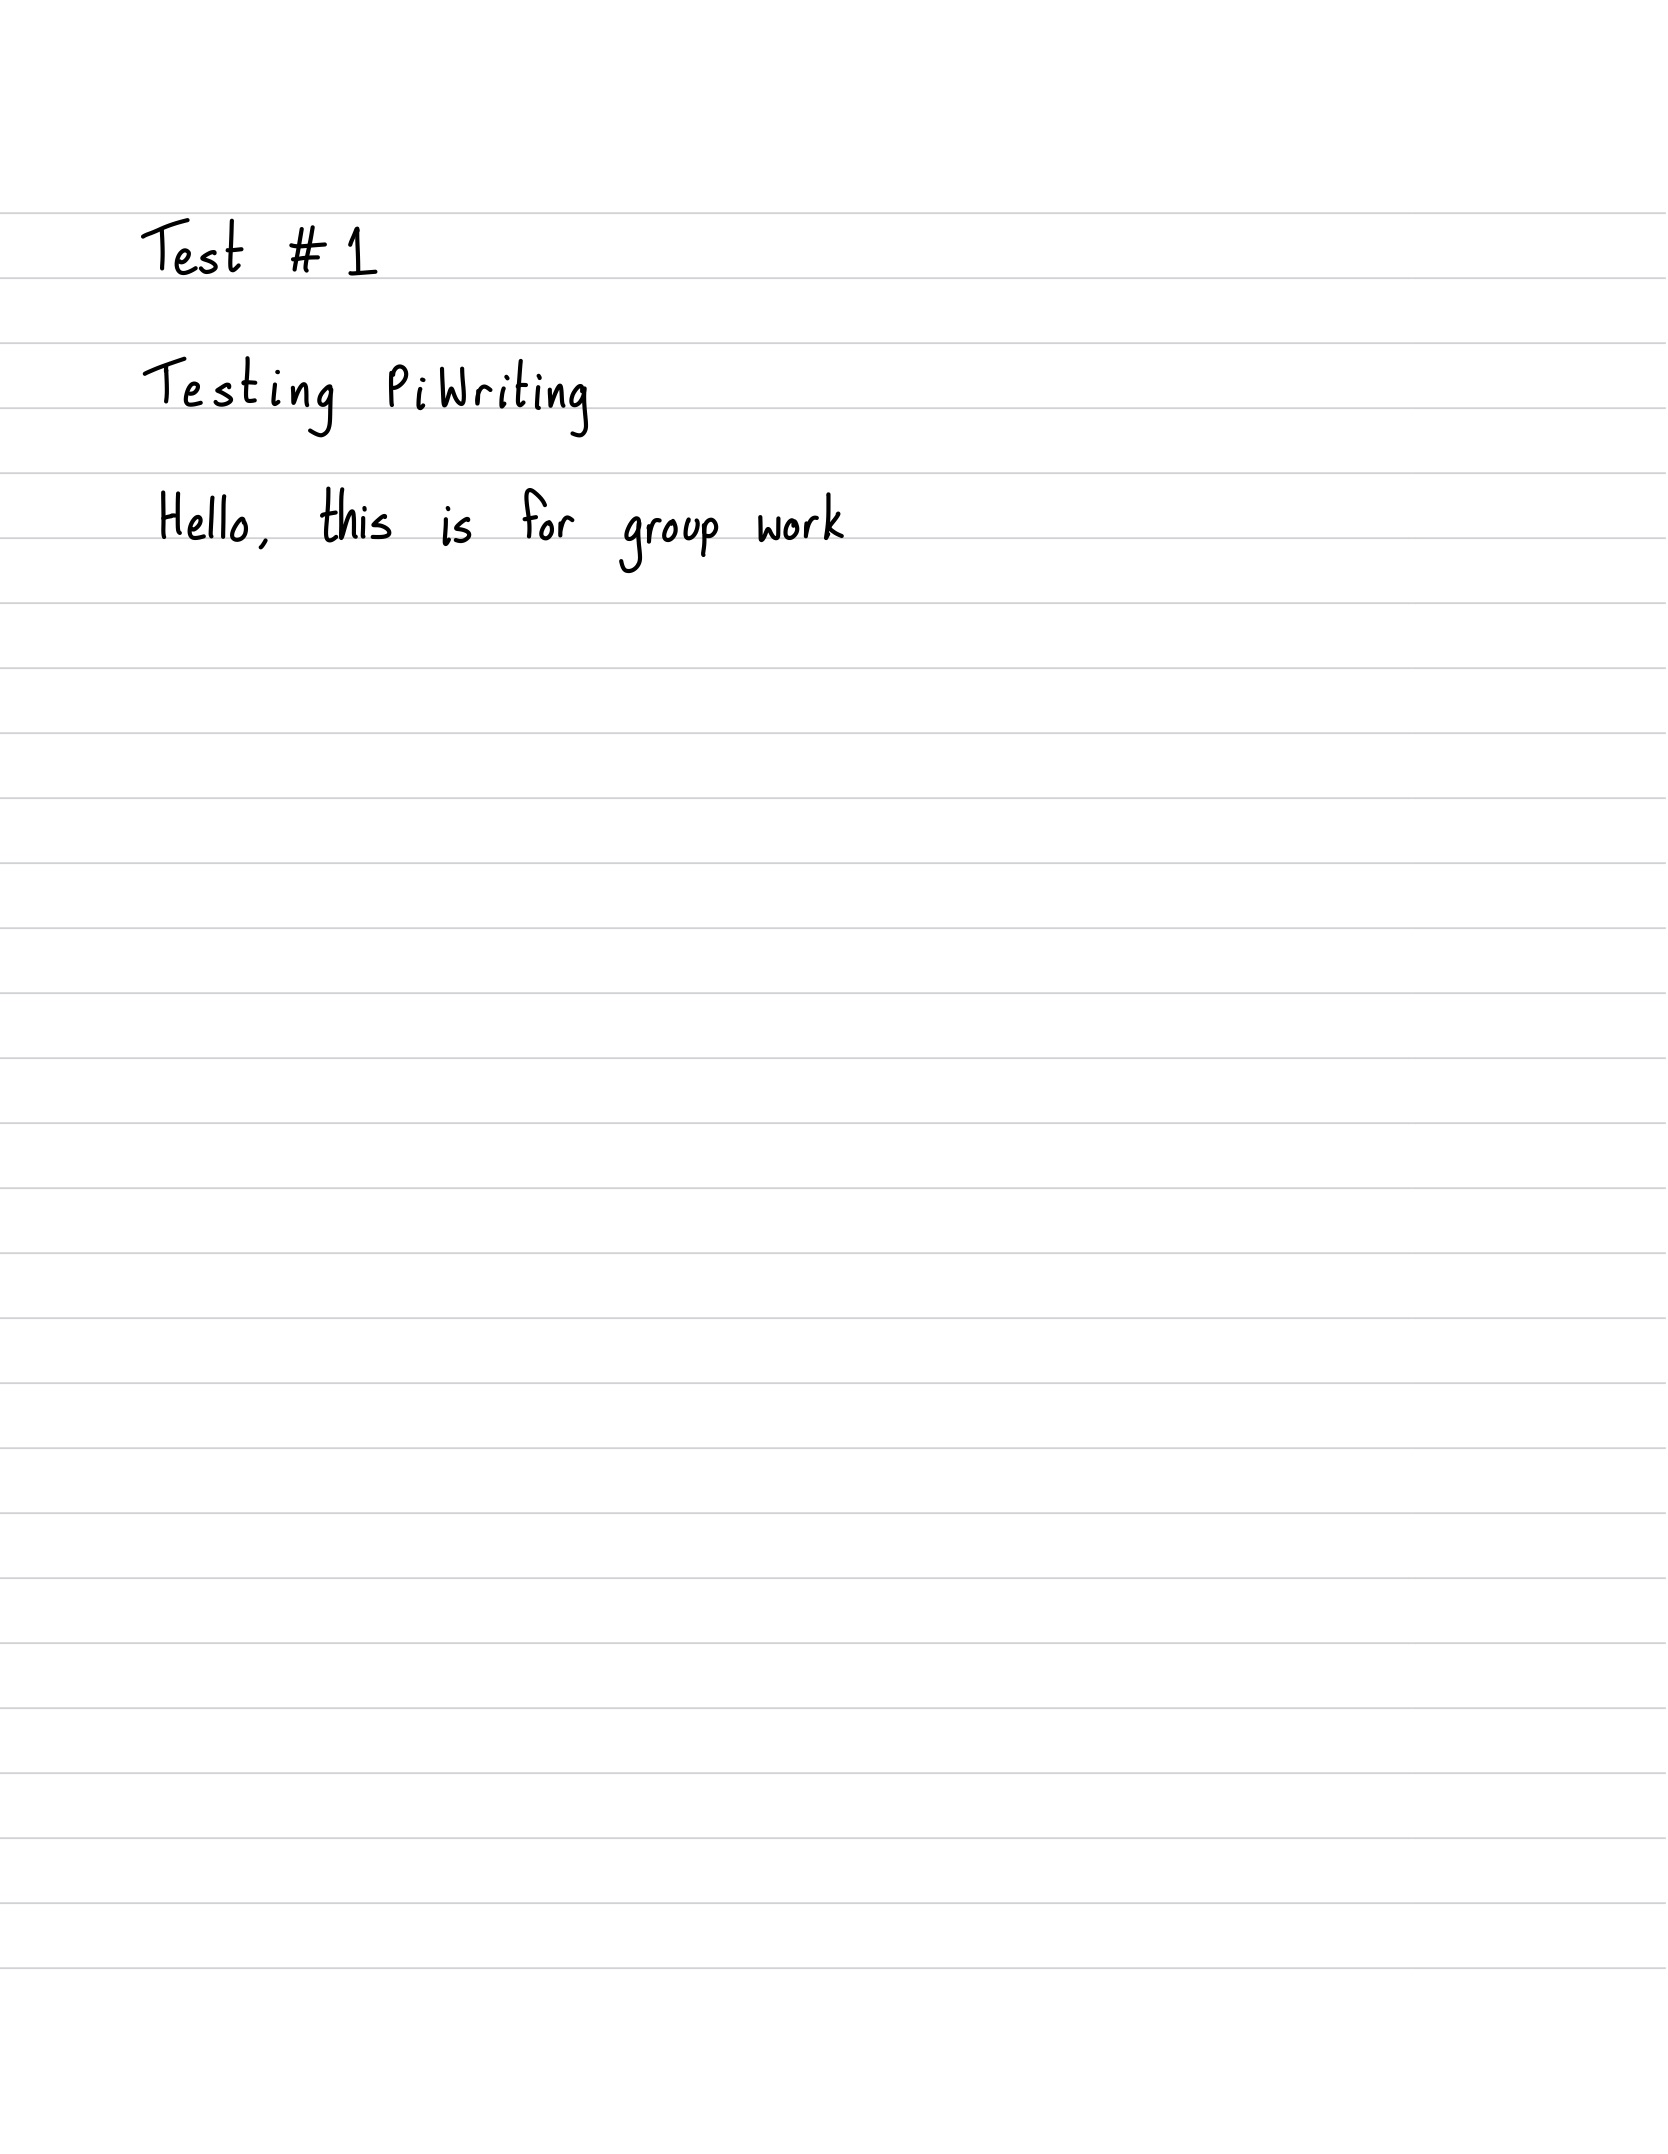 Test #1
Testing PiWriting
Hello, this is for group work